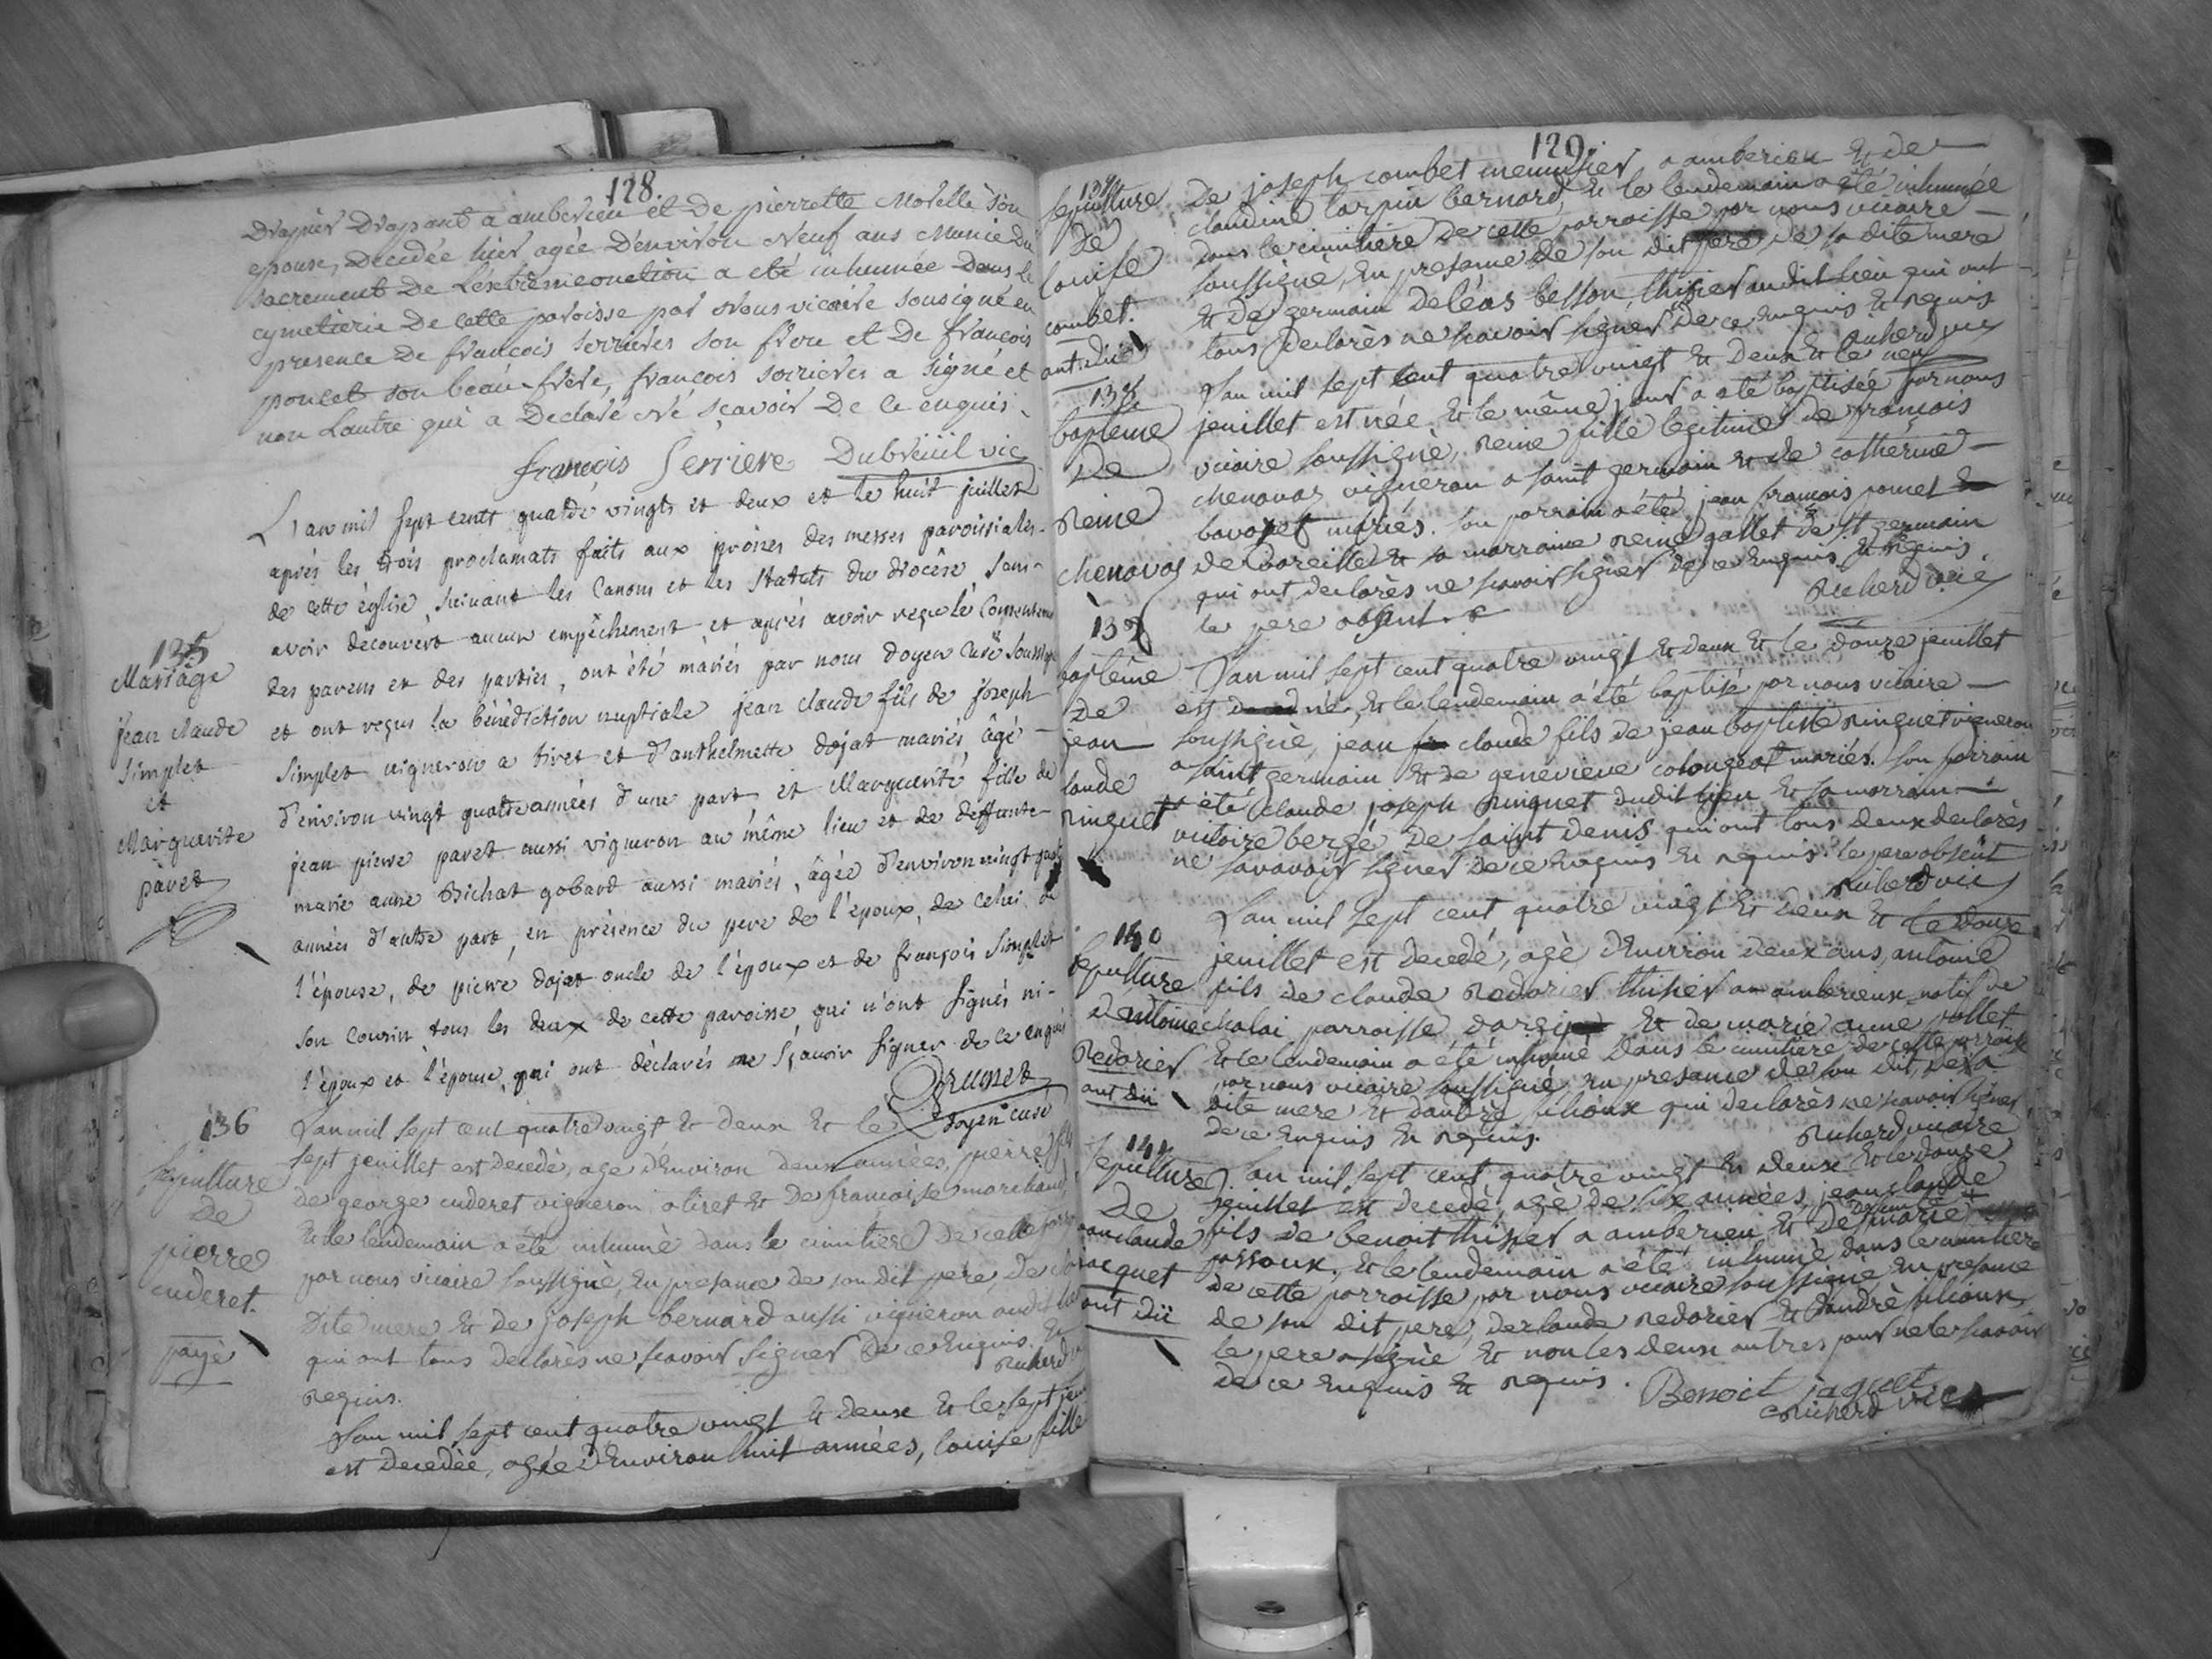 128.
Drapier Drapant a amberieu et De pierrette Morelle son
epouse, Decedée hier agée D'environ Neuf ans Munie du
sacrement De L'extremeonction a eté inhumée Dans le
cymetierie De cette paroisse par Nous vicaire sousigné en
presence De francois serrieres son frere et De francois
poncet son beau-frere, francois serrieres a signé et
non Lautre qui a Declaré Né sçavoir De ce enquis.
françois Serriere Dubreüil vic
135
Mariage
jean claude
Simplet
et
Marguerite
pavet
L'an mil sept cents quatre vingts et deux et le huit juillet
après les trois proclamats faits aux prônes des messes paroissiales
de cette église, suivant les Canons et les Statuts du diocèse, sans
avoir découvert aucun empêchement et après avoir reçu le Consentement
des parens et des parties, ont été mariés par nous doyen Curé soussigné
et ont reçus la bénédiction nuptiale jean claude fils de joseph
Simplet vigneron a tiret et d'anthelmette dojat mariés, âgé
d'environ vingt quatre années d'une part, et Marguerite fille de
jean pierre pavet aussi vigneron au même lieu et de deffunte
marie anne Bichat gobard aussi mariés, âgée d'environ vingt quatre
années d'autre part, en présence du pere de l'époux, de celui de
l'épouse, de pierre dojat oncle de l'époux et de françois Simplet
son Cousin tous les deux de cette paroisse, qui n'ont signés ni
l'époux et l'épouse, qui ont déclarés ne sçavoir signer de ce enquis
Brunet
doyen curé
136
sepulture
De
pierre
cuderet.
payé
L'an mil sept cent quatre vingt Et deux Et le
sept jeuillet est Decedè, age d'Environ deux années, pierre fils
de george cuderet vigneron a tiret Et De francoise marchand,
Et le lendemain a été inhumè dans le cimitiere De cette parroisse
par nous vicaire soussignè, En presance de son dit pere, De sa
Dite mere Et De joseph bernard aussi vigneron audit lieu
qui ont tous declarès ne scavoir signer De ce Enquis. Et
Requis. Ruherd
L'an mil sept cent quatre vingt Et deux Et le sept jeuillet
est Decedèe, agée d'Environ huit années, louise fille
129.
137
sepulture
De
louise
combet.
ont dü
De joseph combet menuisier a amberieu Et de
claudine carpin bernard, Et le lendemain a été inhumée
dans le cimitiere De cette parroisse par nous vicaire
soussignè, En presance De son dit pere De sa dite mere
Et De germain Deléas besson, thisier audit lieu qui ont
tous Declarès ne scavoir signer De ce Enquis Et Requis
Ruherd vic
138
baptême
De
Reine
chenavas
L'an mil sept cent quatre vingt Et Deux Et le neuf
jeuillet est née, Et le même jour a été baptisée par nous
vicaire soussignè, Reine fille legitime De françois
chenavas vigneron a saint germain Et de catherine
bavozet mariés. son parrain a été jean françois poncet
de vareille Et sa marraine Reine gallet De st germain
qui ont declarès ne scavoir signer De ce Enquis Et Requis.
le pere absent. Ruherd vic
139
baptême
De
jean
claude
Ringuet
L'an mil sept cent quatre vingt Et deux Et le douze jeuillet
est né, Et le lendemain a été baptisé par nous vicaire
soussignè, jean claude fils de jean baptiste Ringuet vigneron
a saint germain Et de genevieve colongeat mariés. son parrain
a été claude joseph Ringuet dudit lieu Et sa marraine
victoire bergé De saint Denis qui ont tous deux declarès
ne savavoir signer De ce Enquis Et Requis. le pere absent
Ruherd vic
140
sepulture
d'antoine
Redorier
ont dü
L'an mil sept cent quatre vingt Et deux Et le Douze
jeuillet est Decedé, agè d'Environ deux ans, antoine
fils de claude Redorier thisier a amberieux natif de
chalai parroisse d'argi Et de marie anne pollet
Et le lendemain a été inhumé dans le cimitiere de cette parroisse
par nous vicaire soussigné, En presance de son dit pere, De sa
dite mere Et d'andrè filioux qui declarès ne scavoir signer
De ce Enquis Et Requis. Ruherd vicaire
141
sepulture
De
jean claude
jacquet
ont dü
L'an mil sept cent quatre vingt Et deux Et le douze
jeuillet est decedè, age de six années, jean claude
fils de benoit thisier a amberieu Et De marie
possoux, Et le lendemain a été inhumè dans le cimitiere
de cette parroisse par nous vicaire soussigné En presance
de son dit pere, De claude Redorier Et d'andrè filioux,
le pere a signè Et non les deux autres pour ne le scavoir
de ce Enquis Et Requis. Benoit jaquet
Ruherd vic